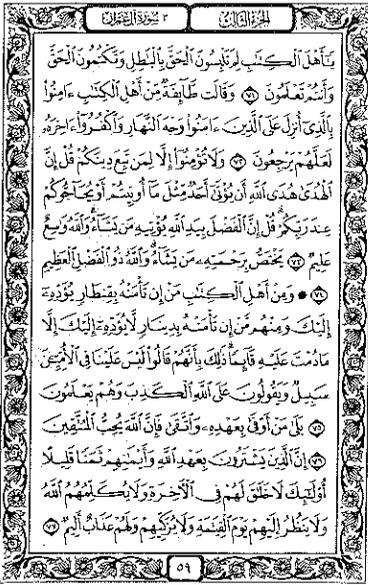 الجزء الثالث ٣ سورة آل عمران
يَٰٓأَهْلَ ٱلْكِتَٰبِ لِمَ تَلْبِسُونَ ٱلْحَقَّ بِٱلْبَٰطِلِ وَتَكْتُمُونَ ٱلْحَقَّ
وَأَنتُمْ تَعْلَمُونَ ٧١ وَقَالَت طَّآئِفَةٌ مِّنْ أَهْلِ ٱلْكِتَٰبِ ءَامِنُوا۟
بِٱلَّذِىٓ أُنزِلَ عَلَى ٱلَّذِينَ ءَامَنُوا۟ وَجْهَ ٱلنَّهَارِ وَٱكْفُرُوٓا۟ ءَاخِرَهُۥ
لَعَلَّهُمْ يَرْجِعُونَ ٧٢ وَلَا تُؤْمِنُوٓا۟ إِلَّا لِمَن تَبِعَ دِينَكُمْ قُلْ إِنَّ
ٱلْهُدَىٰ هُدَى ٱللَّهِ أَن يُؤْتَىٰٓ أَحَدٌ مِّثْلَ مَآ أُوتِيتُمْ أَوْ يُحَآجُّوكُمْ
عِندَ رَبِّكُمْ قُلْ إِنَّ ٱلْفَضْلَ بِيَدِ ٱللَّهِ يُؤْتِيهِ مَن يَشَآءُ وَٱللَّهُ وَٰسِعٌ
عَلِيمٌ ٧٣ يَخْتَصُّ بِرَحْمَتِهِۦ مَن يَشَآءُ وَٱللَّهُ ذُو ٱلْفَضْلِ ٱلْعَظِيمِ
٧٤ وَمِنْ أَهْلِ ٱلْكِتَٰبِ مَنْ إِن تَأْمَنْهُ بِقِنطَارٍ يُؤَدِّهِۦٓ
إِلَيْكَ وَمِنْهُم مَّنْ إِن تَأْمَنْهُ بِدِينَارٍ لَّا يُؤَدِّهِۦٓ إِلَيْكَ إِلَّا
مَا دُمْتَ عَلَيْهِ قَآئِمًا ذَٰلِكَ بِأَنَّهُمْ قَالُوا۟ لَيْسَ عَلَيْنَا فِى ٱلْأُمِّيِّۦنَ
سَبِيلٌ وَيَقُولُونَ عَلَى ٱللَّهِ ٱلْكَذِبَ وَهُمْ يَعْلَمُونَ
٧٥ بَلَىٰ مَنْ أَوْفَىٰ بِعَهْدِهِۦ وَٱتَّقَىٰ فَإِنَّ ٱللَّهَ يُحِبُّ ٱلْمُتَّقِينَ
٧٦ إِنَّ ٱلَّذِينَ يَشْتَرُونَ بِعَهْدِ ٱللَّهِ وَأَيْمَٰنِهِمْ ثَمَنًا قَلِيلًا
أُو۟لَٰٓئِكَ لَا خَلَٰقَ لَهُمْ فِى ٱلْءَاخِرَةِ وَلَا يُكَلِّمُهُمُ ٱللَّهُ
وَلَا يَنظُرُ إِلَيْهِمْ يَوْمَ ٱلْقِيَٰمَةِ وَلَا يُزَكِّيهِمْ وَلَهُمْ عَذَابٌ أَلِيمٌ ٧٧
٥٩